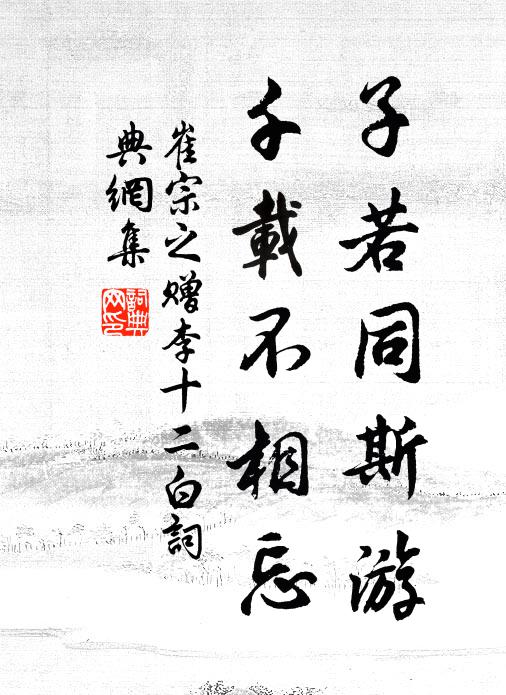 子若同斯游
千載不相忘
崔宗之赠李十二白詞
典網集
詞典
网印